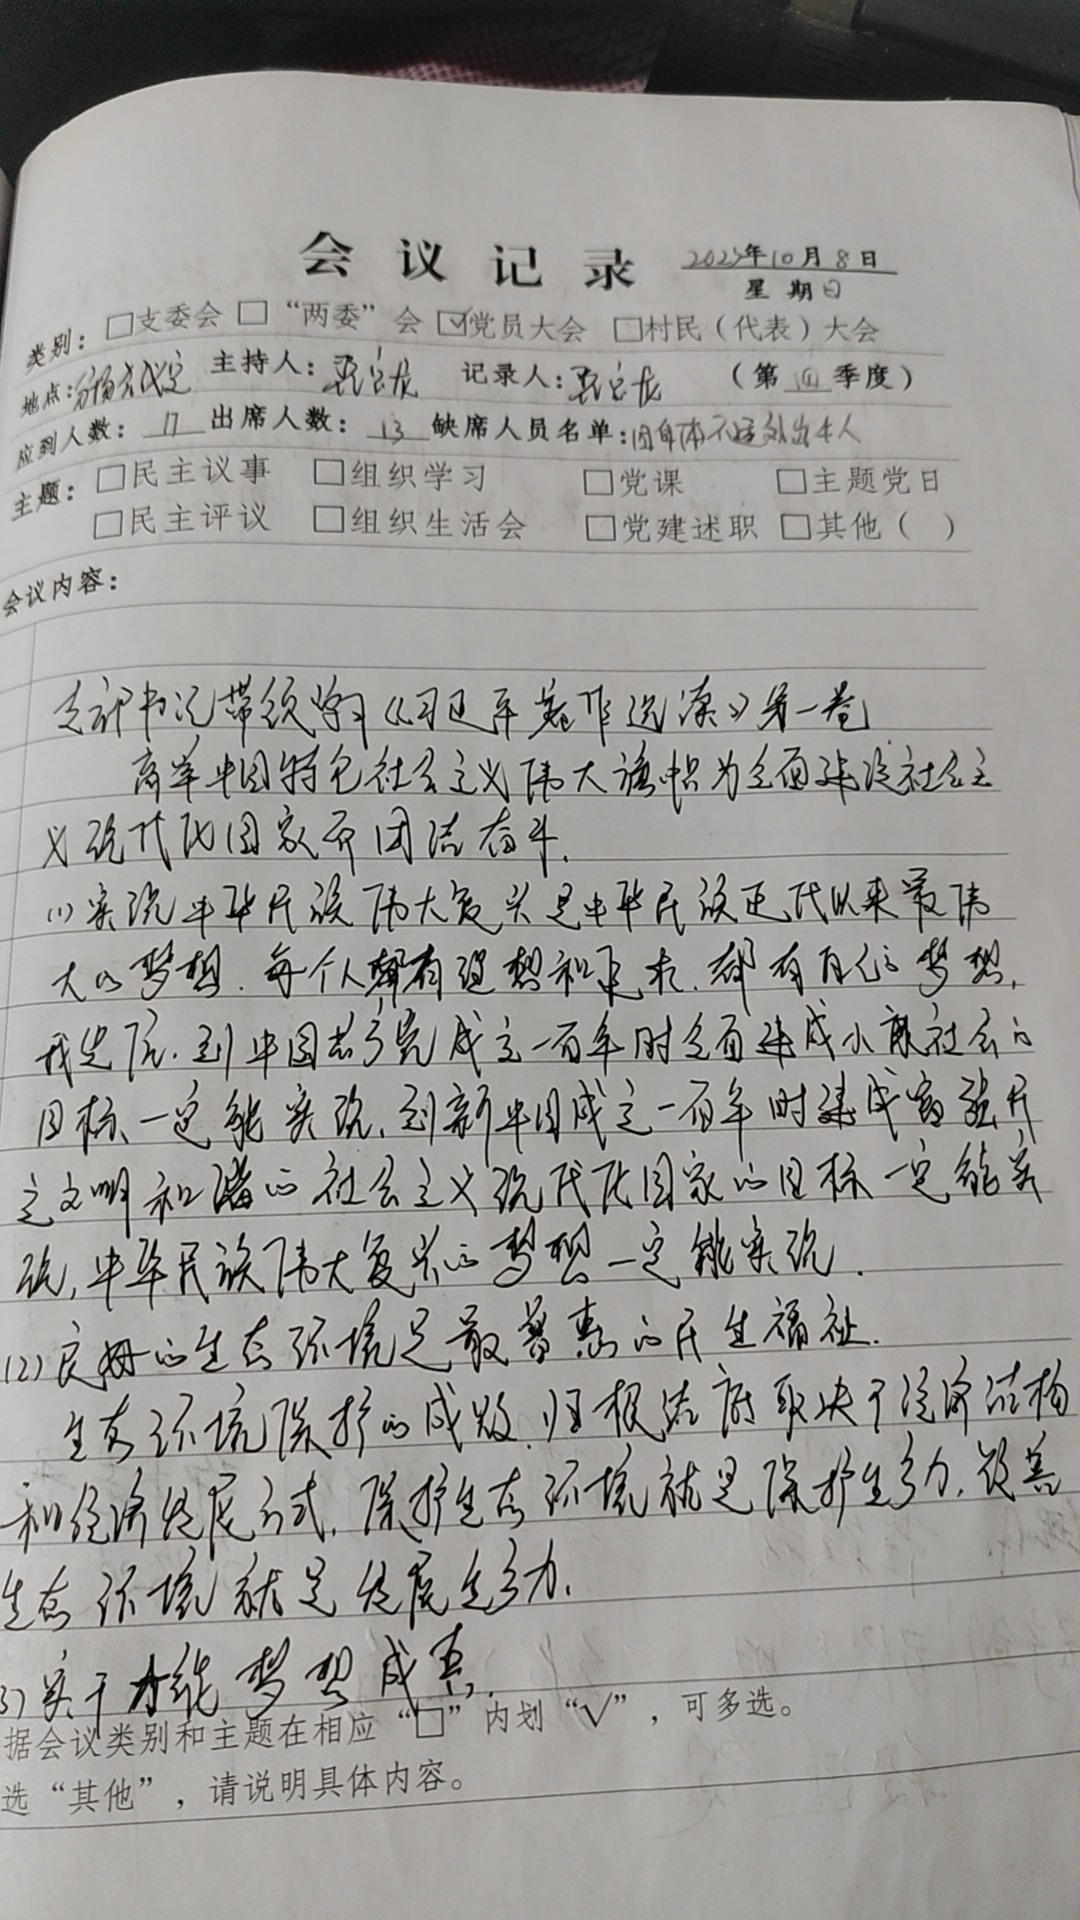 会议记录 2023年10月8日
星期日
类别：□支委会 □“两委”会 ☑党员大会 □村民（代表）大会
地点： 主持人： 记录人： （第四季度）
应到人数：17 出席人数：13 缺席人员名单：因身体不适外出4人
主题：□民主议事 □组织学习 □党课 □主题党日
□民主评议 □组织生活会 □党建述职 □其他（ ）
会议内容：
支部书记带领学习《习近平著作选读》第一卷
高举中国特色社会主义伟大旗帜为全面建设社会主
义现代化国家而团结奋斗.
(1)实现中华民族伟大复兴是中华民族近代以来最伟
大的梦想.每个人都有理想和追求.都有自己的梦想,
我坚信.到中国共产党成立一百年时全面建成小康社会的
目标一定能实现,到新中国成立一百年时建成富强民
主文明和谐的社会主义现代化国家的目标一定能实
现,中华民族伟大复兴的梦想一定能实现.
(2)良好的生态环境是最普惠的民生福祉.
生态环境保护的成败.归根结底取决于经济结构
和经济发展方式,保护生态环境就是保护生产力.改善
生态环境就是发展生产力.
3)实干才能梦想成真.
据会议类别和主题在相应“□”内划“√”，可多选。
选“其他”，请说明具体内容。